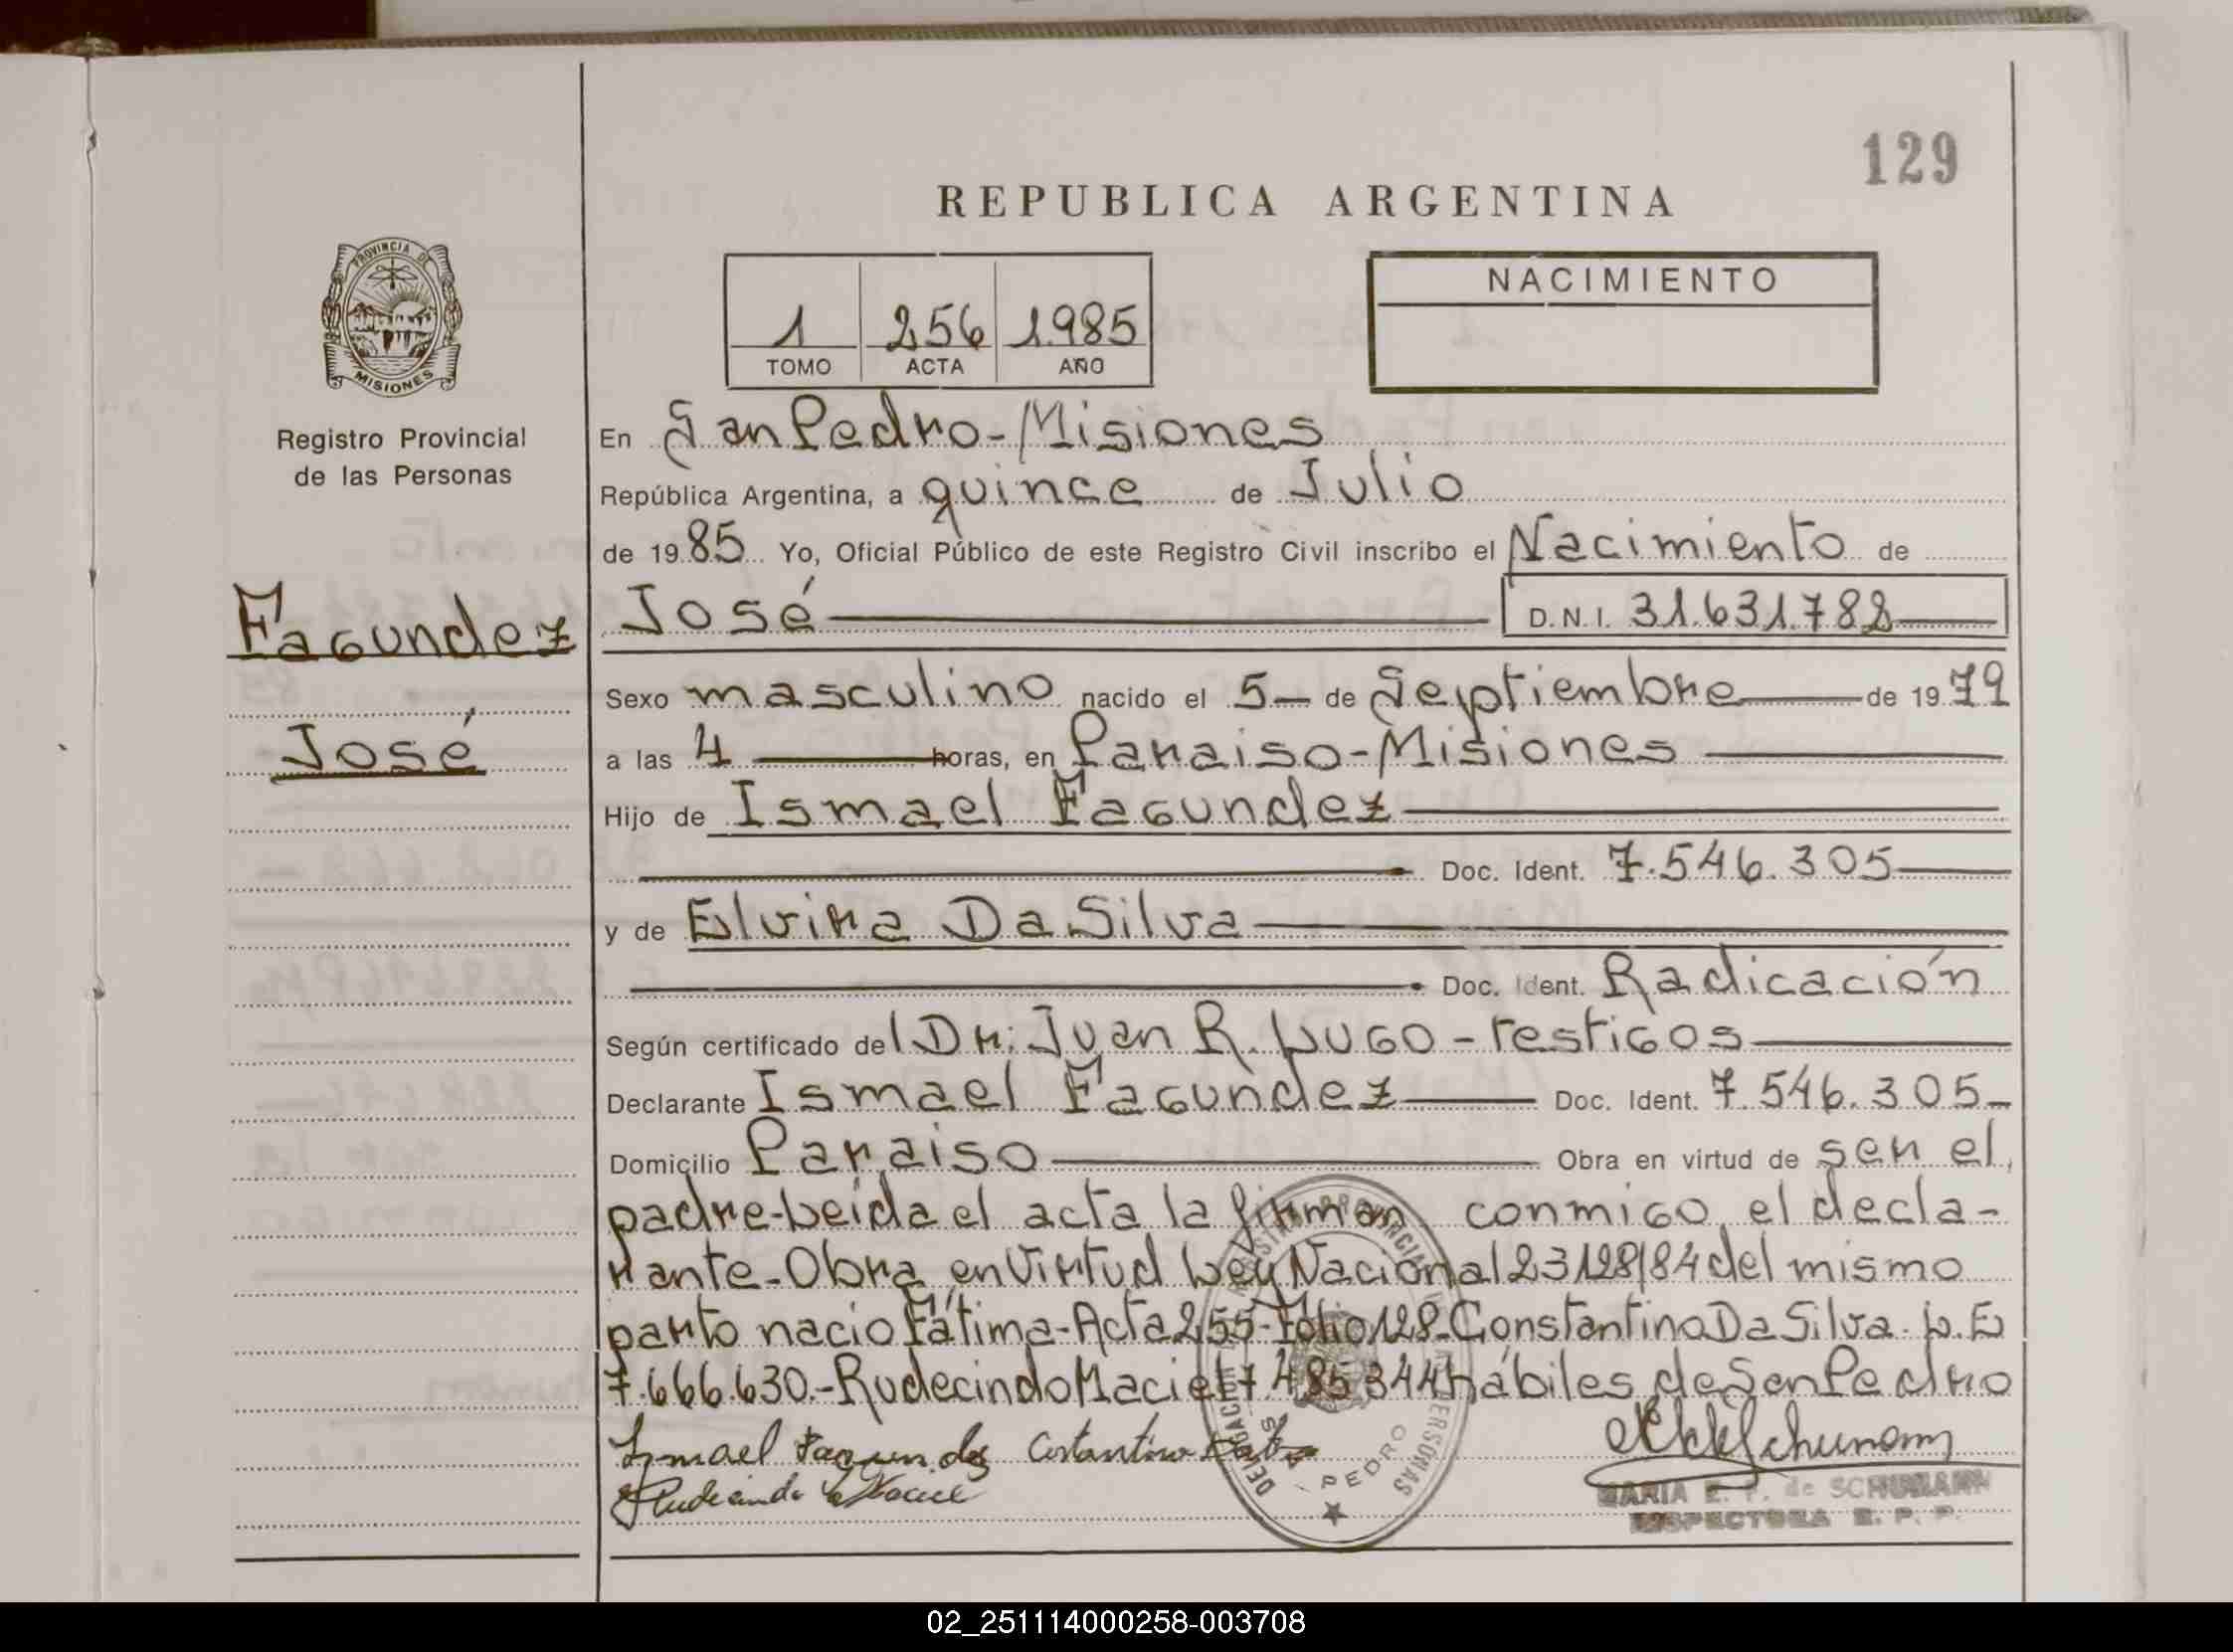 129
REPUBLICA ARGENTINA
PROVINCIA DE
MISIONES
NACIMIENTO
1 256 1.985
TOMO ACTA AÑO
Registro Provincial
de las Personas
Fagundez
José
En San Pedro-Misiones
República Argentina, a quince de Julio
de 1985 Yo, Oficial Público de este Registro Civil inscribo el Nacimiento de
José D.N.I. 31.631.788
Sexo masculino nacido el 5 de Septiembre de 1979
a las 4 horas, en Paraiso-Misiones
Hijo de Ismael Fagundez
Doc. Ident. 7.546.305
y de Elvira Da Silva
Doc. Ident. Radicación
Según certificado del Dr: Juan R. Lugo - testigos
Declarante Ismael Fagundez Doc. Ident. 7.546.305
Domicilio Paraiso Obra en virtud de ser el
padre-Leída el acta la firman conmigo, el decla-
rante-Obra en Virtud Ley Nacional 23128/84 del mismo
parto nacio Fátima-Acta 255-Folio 128-Constantino Da Silva. L.E
7.666.630.-Rudecindo Maciel 7 485 344 hábiles de San Pedro
Ismael Fagundez
MARIA E. F. de SCHUMANN
INSPECTORA R. P. P.
02_251114000258-003708